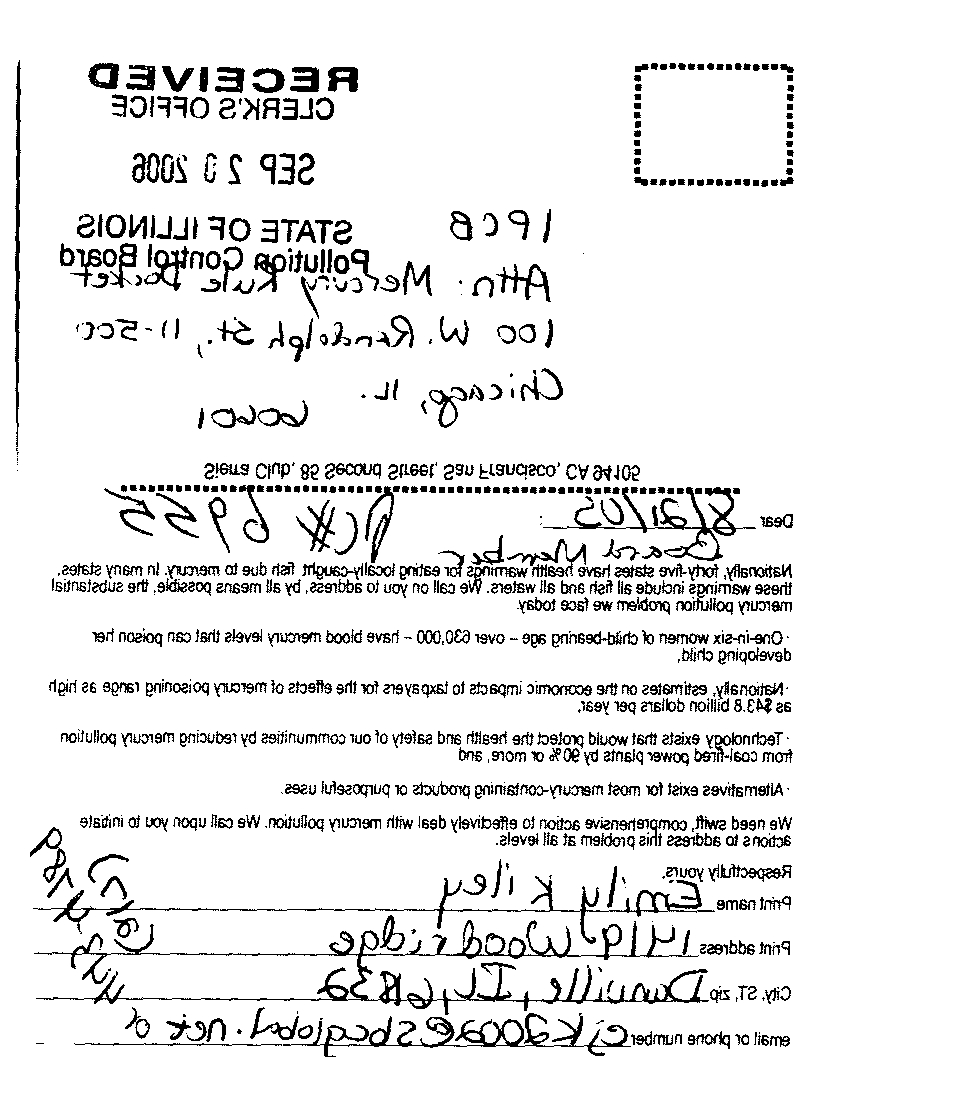 RECEIVED
CLERK'S OFFICE
SEP 20 2006
STATE OF ILLINOIS
Pollution Control Board
IPCB
Attn: Mercury Rule Docket
100 W. Randolph St., 11-500
Chicago, IL.
60601
Sierra Club, 85 Second Street, San Francisco, CA 94105
Dear 8/21/05 : PC# 6955
Board Member
Nationally, forty-five states have health warnings for eating locally-caught fish due to mercury. In many states,
these warnings include all fish and all waters. We call on you to address, by all means possible, the substantial
mercury pollution problem we face today.
· One-in-six women of child-bearing age – over 630,000 – have blood mercury levels that can poison her
developing child,
· Nationally, estimates on the economic impacts to taxpayers for the effects of mercury poisoning range as high
as $43.8 billion dollars per year,
· Technology exists that would protect the health and safety of our communities by reducing mercury pollution
from coal-fired power plants by 90% or more, and
· Alternatives exist for most mercury-containing products or purposeful uses.
We need swift, comprehensive action to effectively deal with mercury pollution. We call upon you to initiate
actions to address this problem at all levels.
Respectfully yours,
Print name Emily Kiley
Print address 1419 Woodridge
City, ST, zip Danville, IL, 61832
email or phone number cjk2002@sbcglobal.net or